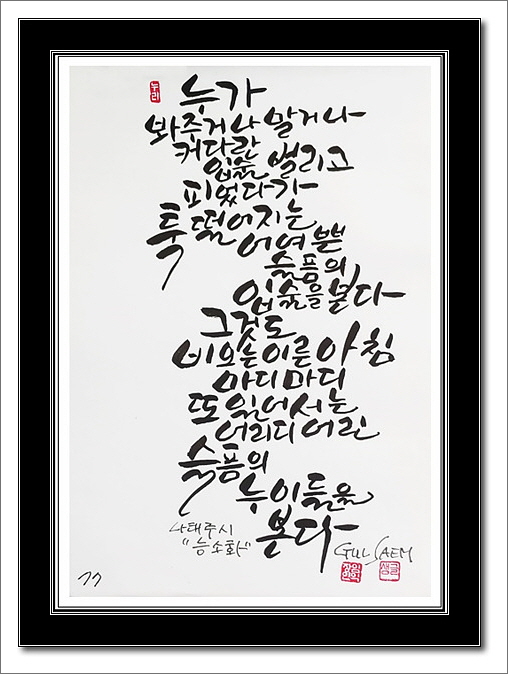 누리
누가
봐주거나 말거나
커다란
입술 벌리고
피었다가
툭 떨어지는
어여쁜
슬픔의
입술을 본다
그것도
비오는 이른 아침
마디마디
또 일어서는
어리디 어린
슬픔의
누이들을
본다
나태주 시
"능소화"
GUL SAEM
77